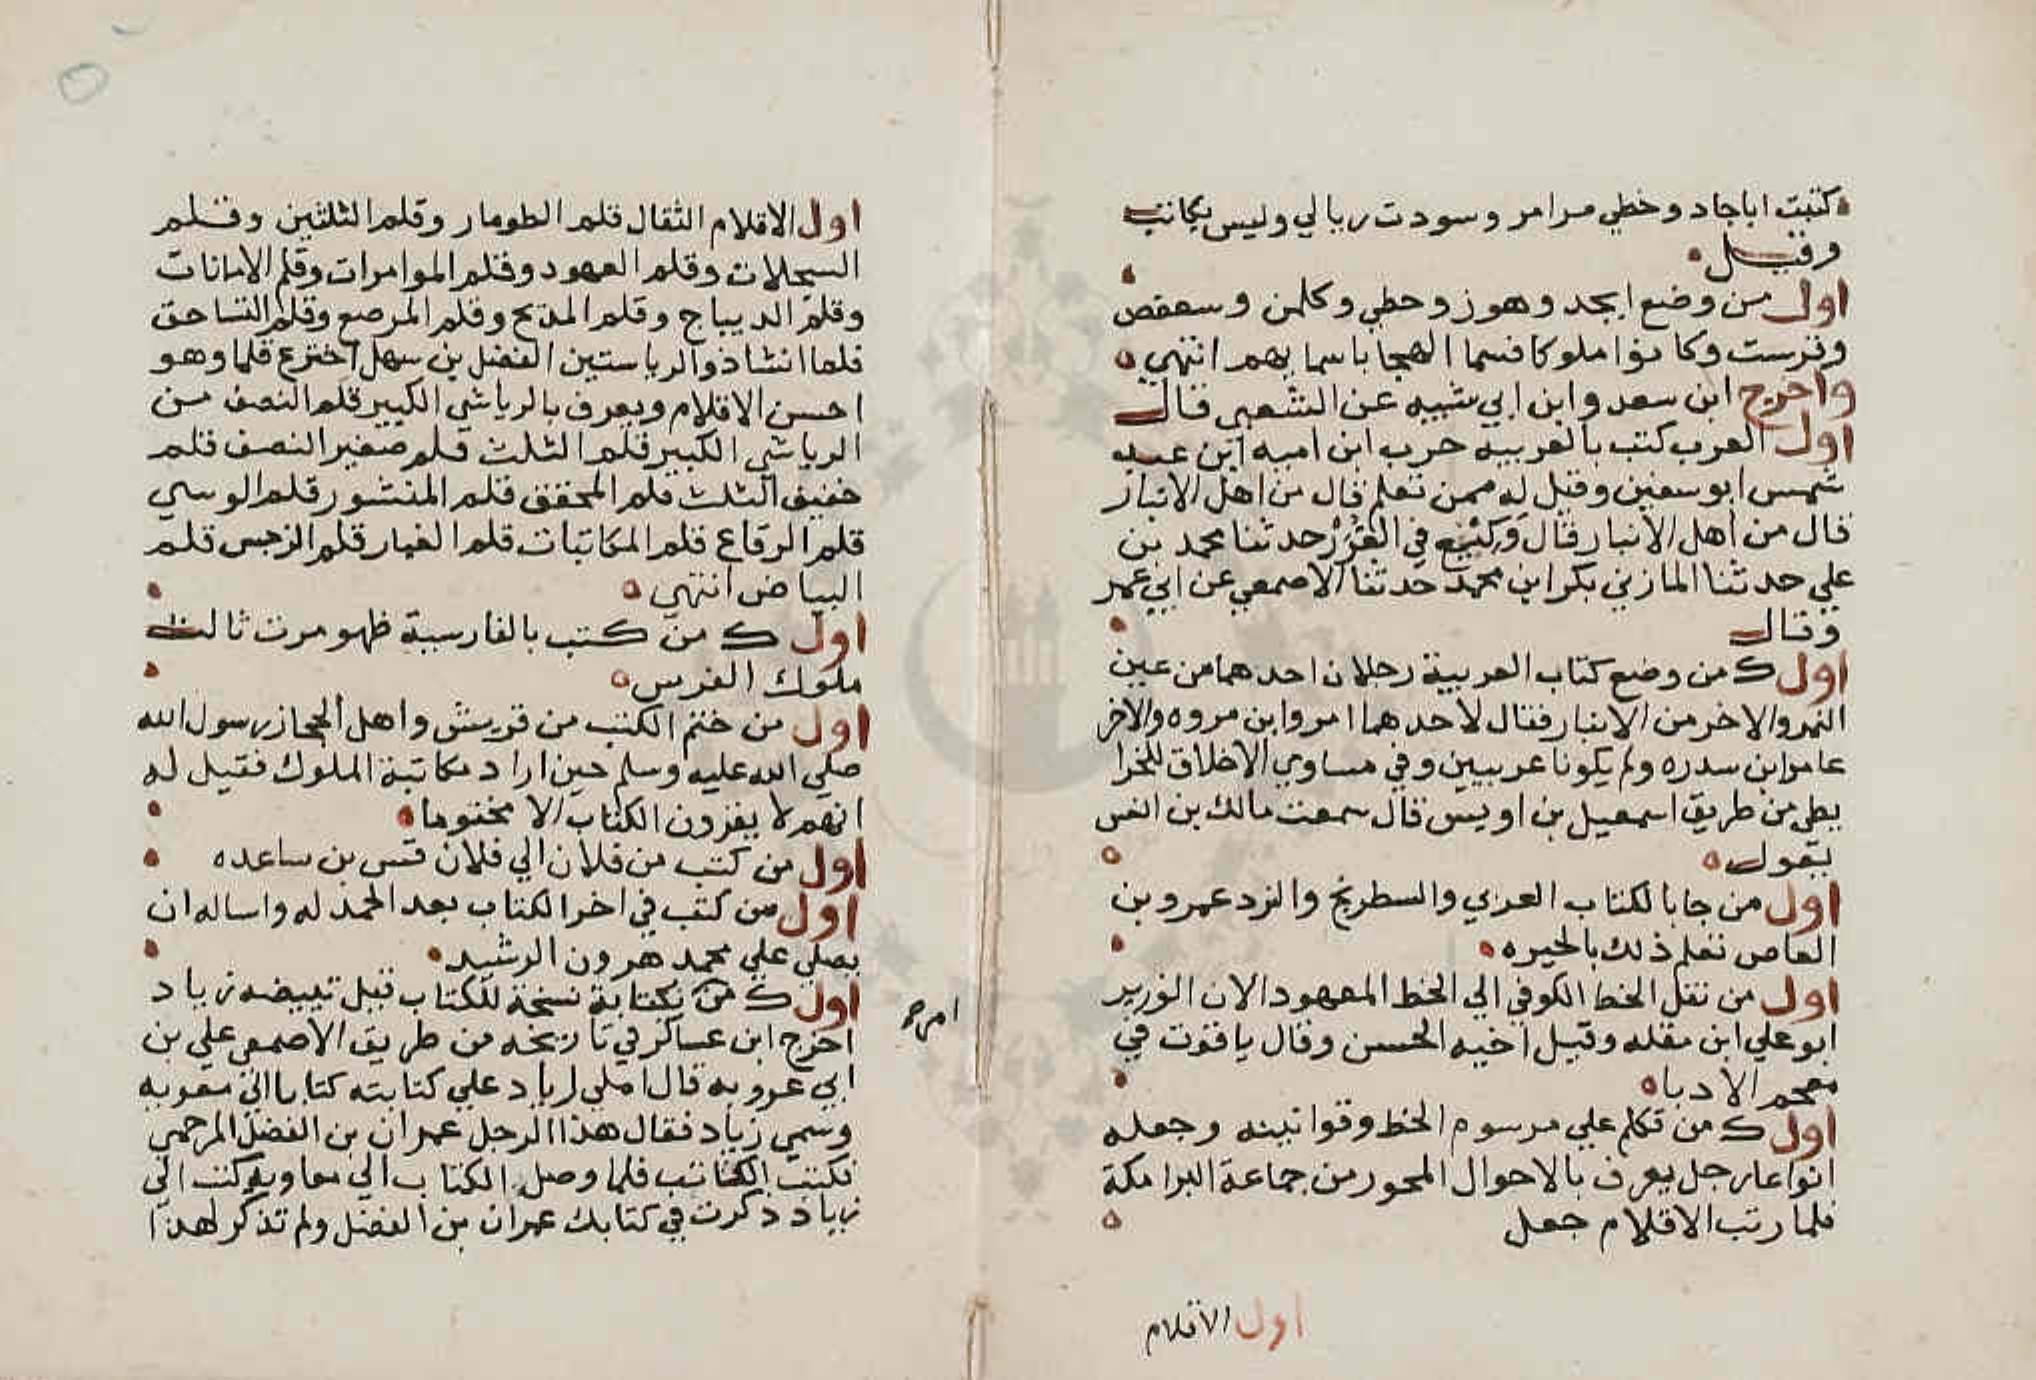 كتبت اباجاد وحطي مرامر وسودت سربالي وليس بكاتب
وقيل
اول من وضع ابجد وهوز وحطي وكلمن وسعفص
وقرست وكانوا ملوكا فسما الهجا باسمايهم انتهي
واخرج ابن سعد وابن ابي شيبه عن الشعبي قال
اول العرب كتب بالعربيه حرب ابن اميه ابن عبد
شمس ابو سفين وقيل له ممن تعلم قال من اهل الانبار
قال من اهل الانبار قال وكيع في الغرر حدثنا محمد بن
علي حدثنا المازني بكر ابن محمد حدثنا الاصمعي عن ابي عمر
وقال
اول ك من وضع كتاب العربية رجلان احدهما من عين
التمر والاخر من الانبار فقال لاحدهما امروا بن مروه والاخر
عامر ابن سدره ولم يكونا عربيين وفي مساوي الاخلاق للخرا
يطي من طريق اسمعيل بن اويس قال سمعت مالك بن انس
يقول
اول من جا بالكتاب العربي والسطرنج والنرد عمرو بن
العاص تعلم ذلك بالحيره
اول من نقل الخط الكوفي الي الخط المعهود الان الوزير
ابو علي ابن مقله وقيل اخيه الحسن وقال ياقوت في
معجم الادبا
اول ك من تكلم علي مرسوم الخط وقوانينه وجعله
انواعا رجل يعرف بالاحوال المحور من جماعة البرامكة
فلما رتب الاقلام جعل
اول الاقلام
اول الاقلام الثقال قلم الطومار وقلم الثلثين وقلم
السجلات وقلم العهود وقلم الموامرات وقلم الامانات
وقلم الديباج وقلم المدبج وقلم المرصع وقلم التساحق
فلما انشا ذو الرياستين الفضل بن سهل اخترع قلما وهو
احسن الاقلام ويعرف بالرياشي الكبير قلم النصف من
الرياشي الكبير قلم الثلث قلم صغير النصف قلم
خفيف الثلث قلم المحقق قلم المنشور قلم الوسي
قلم الرقاع قلم المكاتبات قلم الغبار قلم النرجس قلم
البياض انتهي
اول ك من كتب بالفارسية ظهومرت ثالث
ملوك الفرس
اول من ختم الكتب من قريش واهل الحجاز رسول الله
صلي الله عليه وسلم حين اراد مكاتبة الملوك فقيل له
انهم لا يقرون الكتاب الا مختوما
اول من كتب من فلان الي فلان قس بن ساعده
اول من كتب في اخر الكتاب بعد الحمد له واساله ان
يصلي علي محمد هرون الرشيد
اول ك من بكتابة نسخة للكتاب قبل تبييضه زياد
امره
اخرج ابن عساكر في تاريخه من طريق الاصمعي علي بن
ابي عروبه قال املي زياد علي كتابته كتابا الي معويه
وسمي زياد فقال هذا الرجل عمران بن الفضل المرجمي
فكتب الكاتب فلما وصل الكتاب الي معاويه كتب الي
زياد ذكرت في كتابك عمران بن الفضل ولم تذكر لهذا